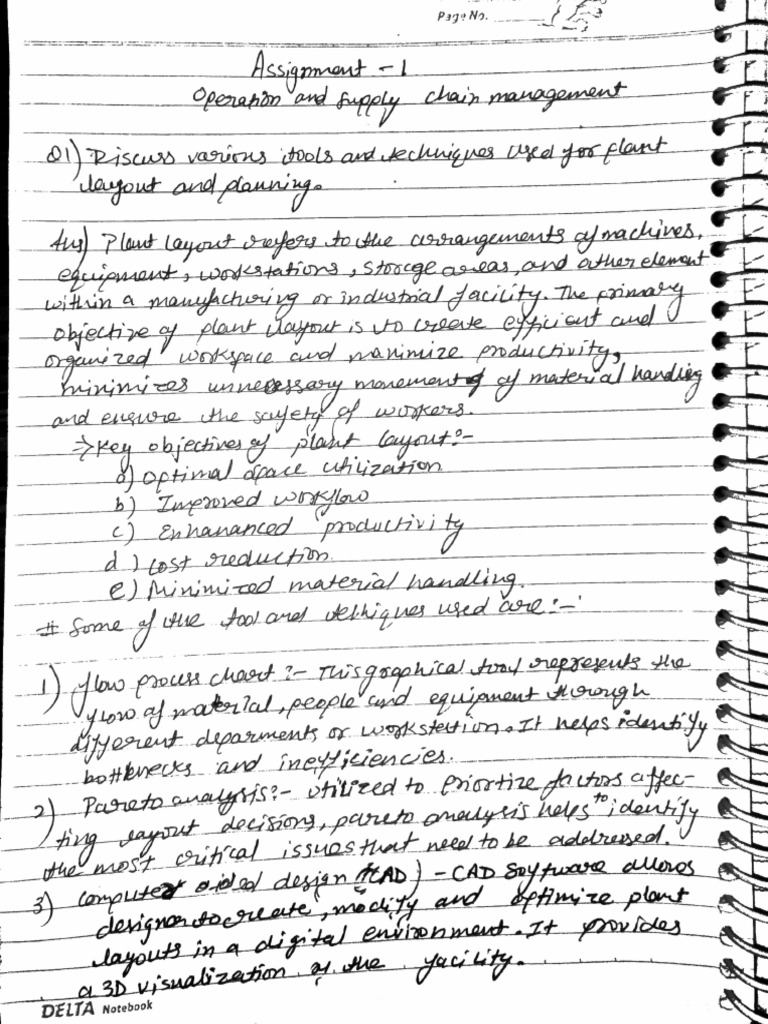 Page No.
Assignment - 1
Operation and Supply chain management
Q1) Discuss various tools and techniques used for plant
layout and planning.
Ans) Plant layout refers to the arrangements of machines,
equipment, workstations, storage areas, and other element
within a manufacturing or industrial facility. The primary
objective of plant layout is to create efficient and
organized workspace and maximize productivity,
minimizes unnecessary movement of material handling
and ensure the safety of workers.
⇒ Key objectives of plant layout:-
a) Optimal space utilization
b) Improved workflow
c) Enhananced productivity
d) Cost reduction.
e) Minimized material handling.
# Some of the tool and tethiques used are:-
1) flow process chart :- This graphical tool represents the
flow of material, people and equipment through
different deparments or workstation. It helps identify
bottlenecks and inefficiencies.
2) Pareto analysis:- utilized to prioritize factors affec-
ting layout decisions, pareto analysis helps to identify
the most critical issues that need to be addressed.
3) Computer aided design (CAD) - CAD software allows
designer to create, modify and optimize plant
layouts in a digital environment. It provides
a 3D visualization of the facility.
DELTA Notebook